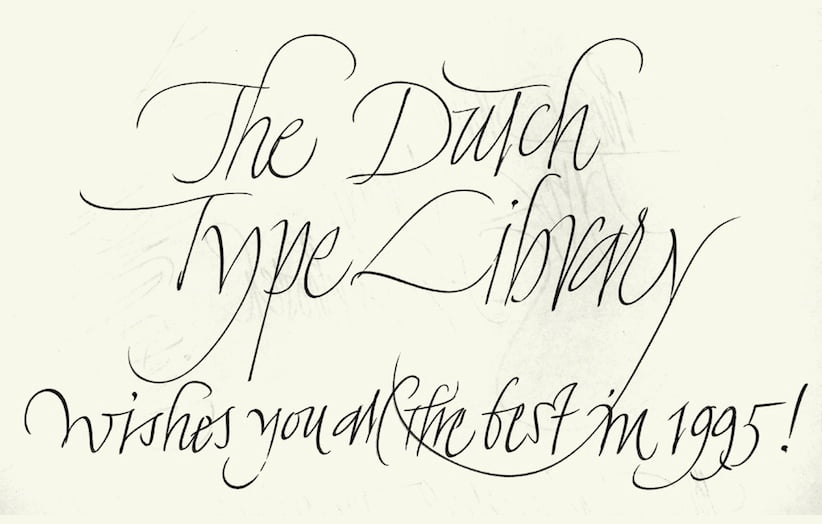 The Dutch
Type Library
wishes you all the best in 1995!